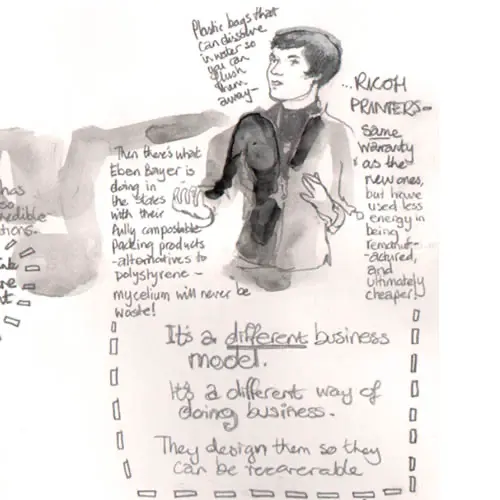 Plastic bags that
can dissolve
in water so
you can
flush
them
away-
...RICOH
PRINTERS-
same
warranty
as the
new ones,
but have
used less
energy in
being
remanuf-
-actured,
and
ultimately
cheaper!
Then there's what
Eben Bayer is
doing in
the states
with their
fully compostable
packing products
-alternatives to
polystyrene-
mycelium will never be
waste!
has
so
redible
tions.
ink
re
t
It's a different business
model.
It's a different way of
doing business.
They design them so they
can be recoverable